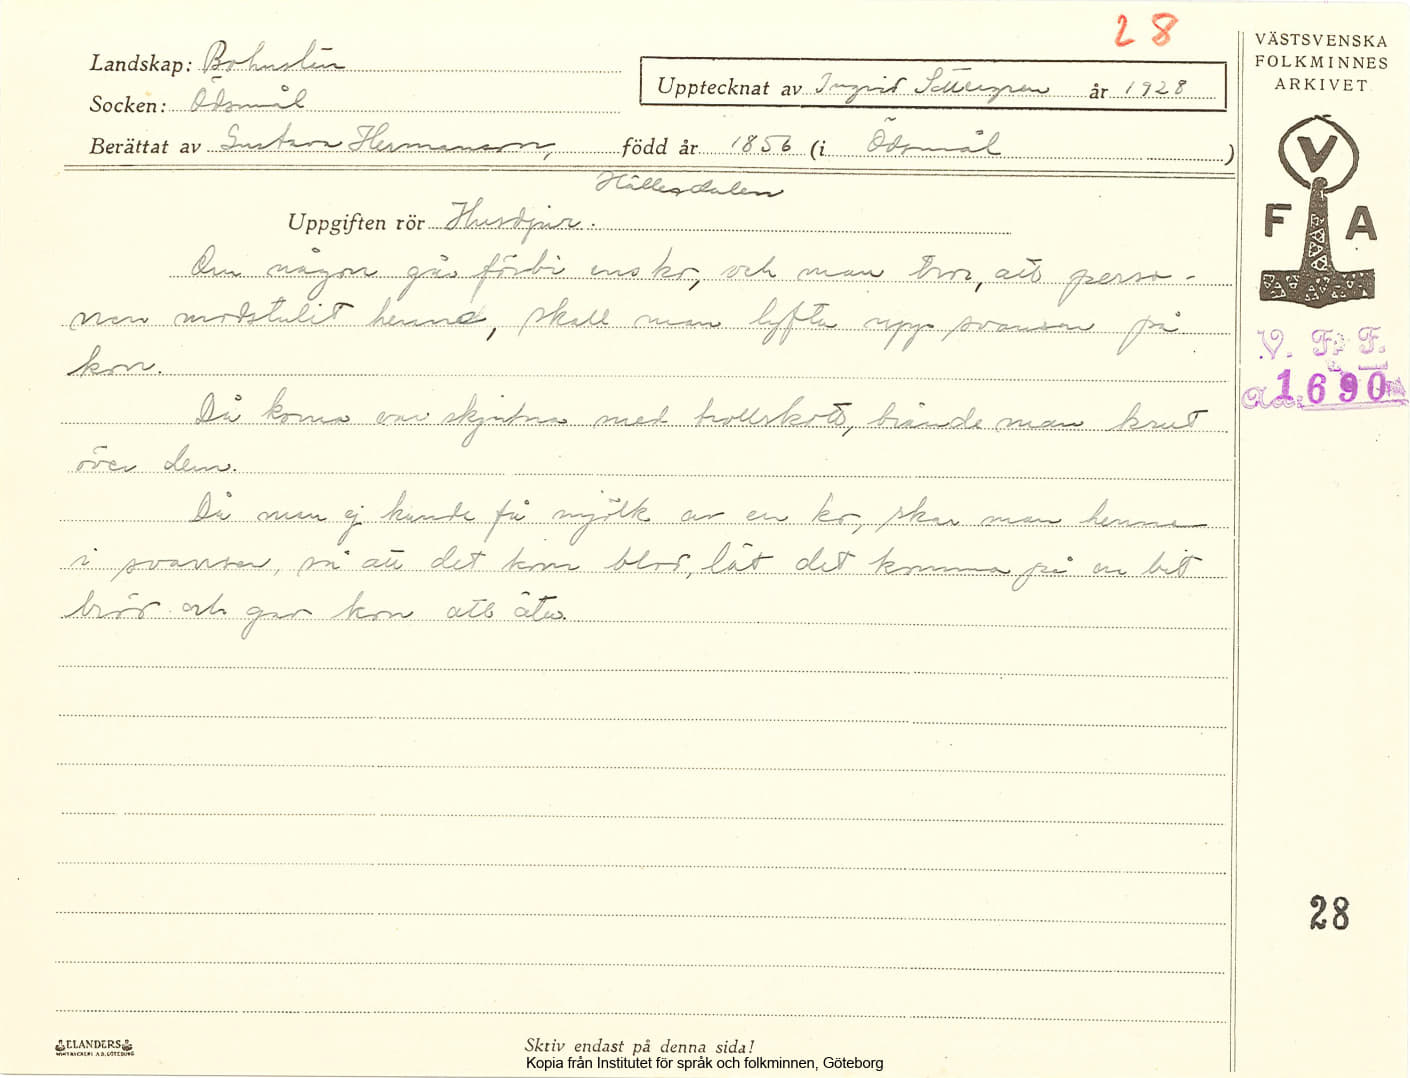 28
Landskap: Bohuslän
Socken: Ödsmål
Upptecknat av Ingrid Sättergren år 1928
Berättat av Gustava Hermansson, född år 1856 (i Ödsmål)
Hällesdalen
Uppgiften rör Husdjur.
Om någon går förbi ens ko, och man tror, att perso-
nen modstulit henne, skall man lyfta upp svansen på
kon.
Då korna var skjutna med trollskott, brände man krut
över dem.
Då man ej kunde få mjölk av en ko, skar man henne
i svansen, så att det kom blod, lät det komma på en bit
bröd och gav kon att äta.
VÄSTSVENSKA
FOLKMINNES
ARKIVET
V
F A
V. F. F.
1690
28
ELANDERS
Skriv endast på denna sida!
Kopia från Institutet för språk och folkminnen, Göteborg